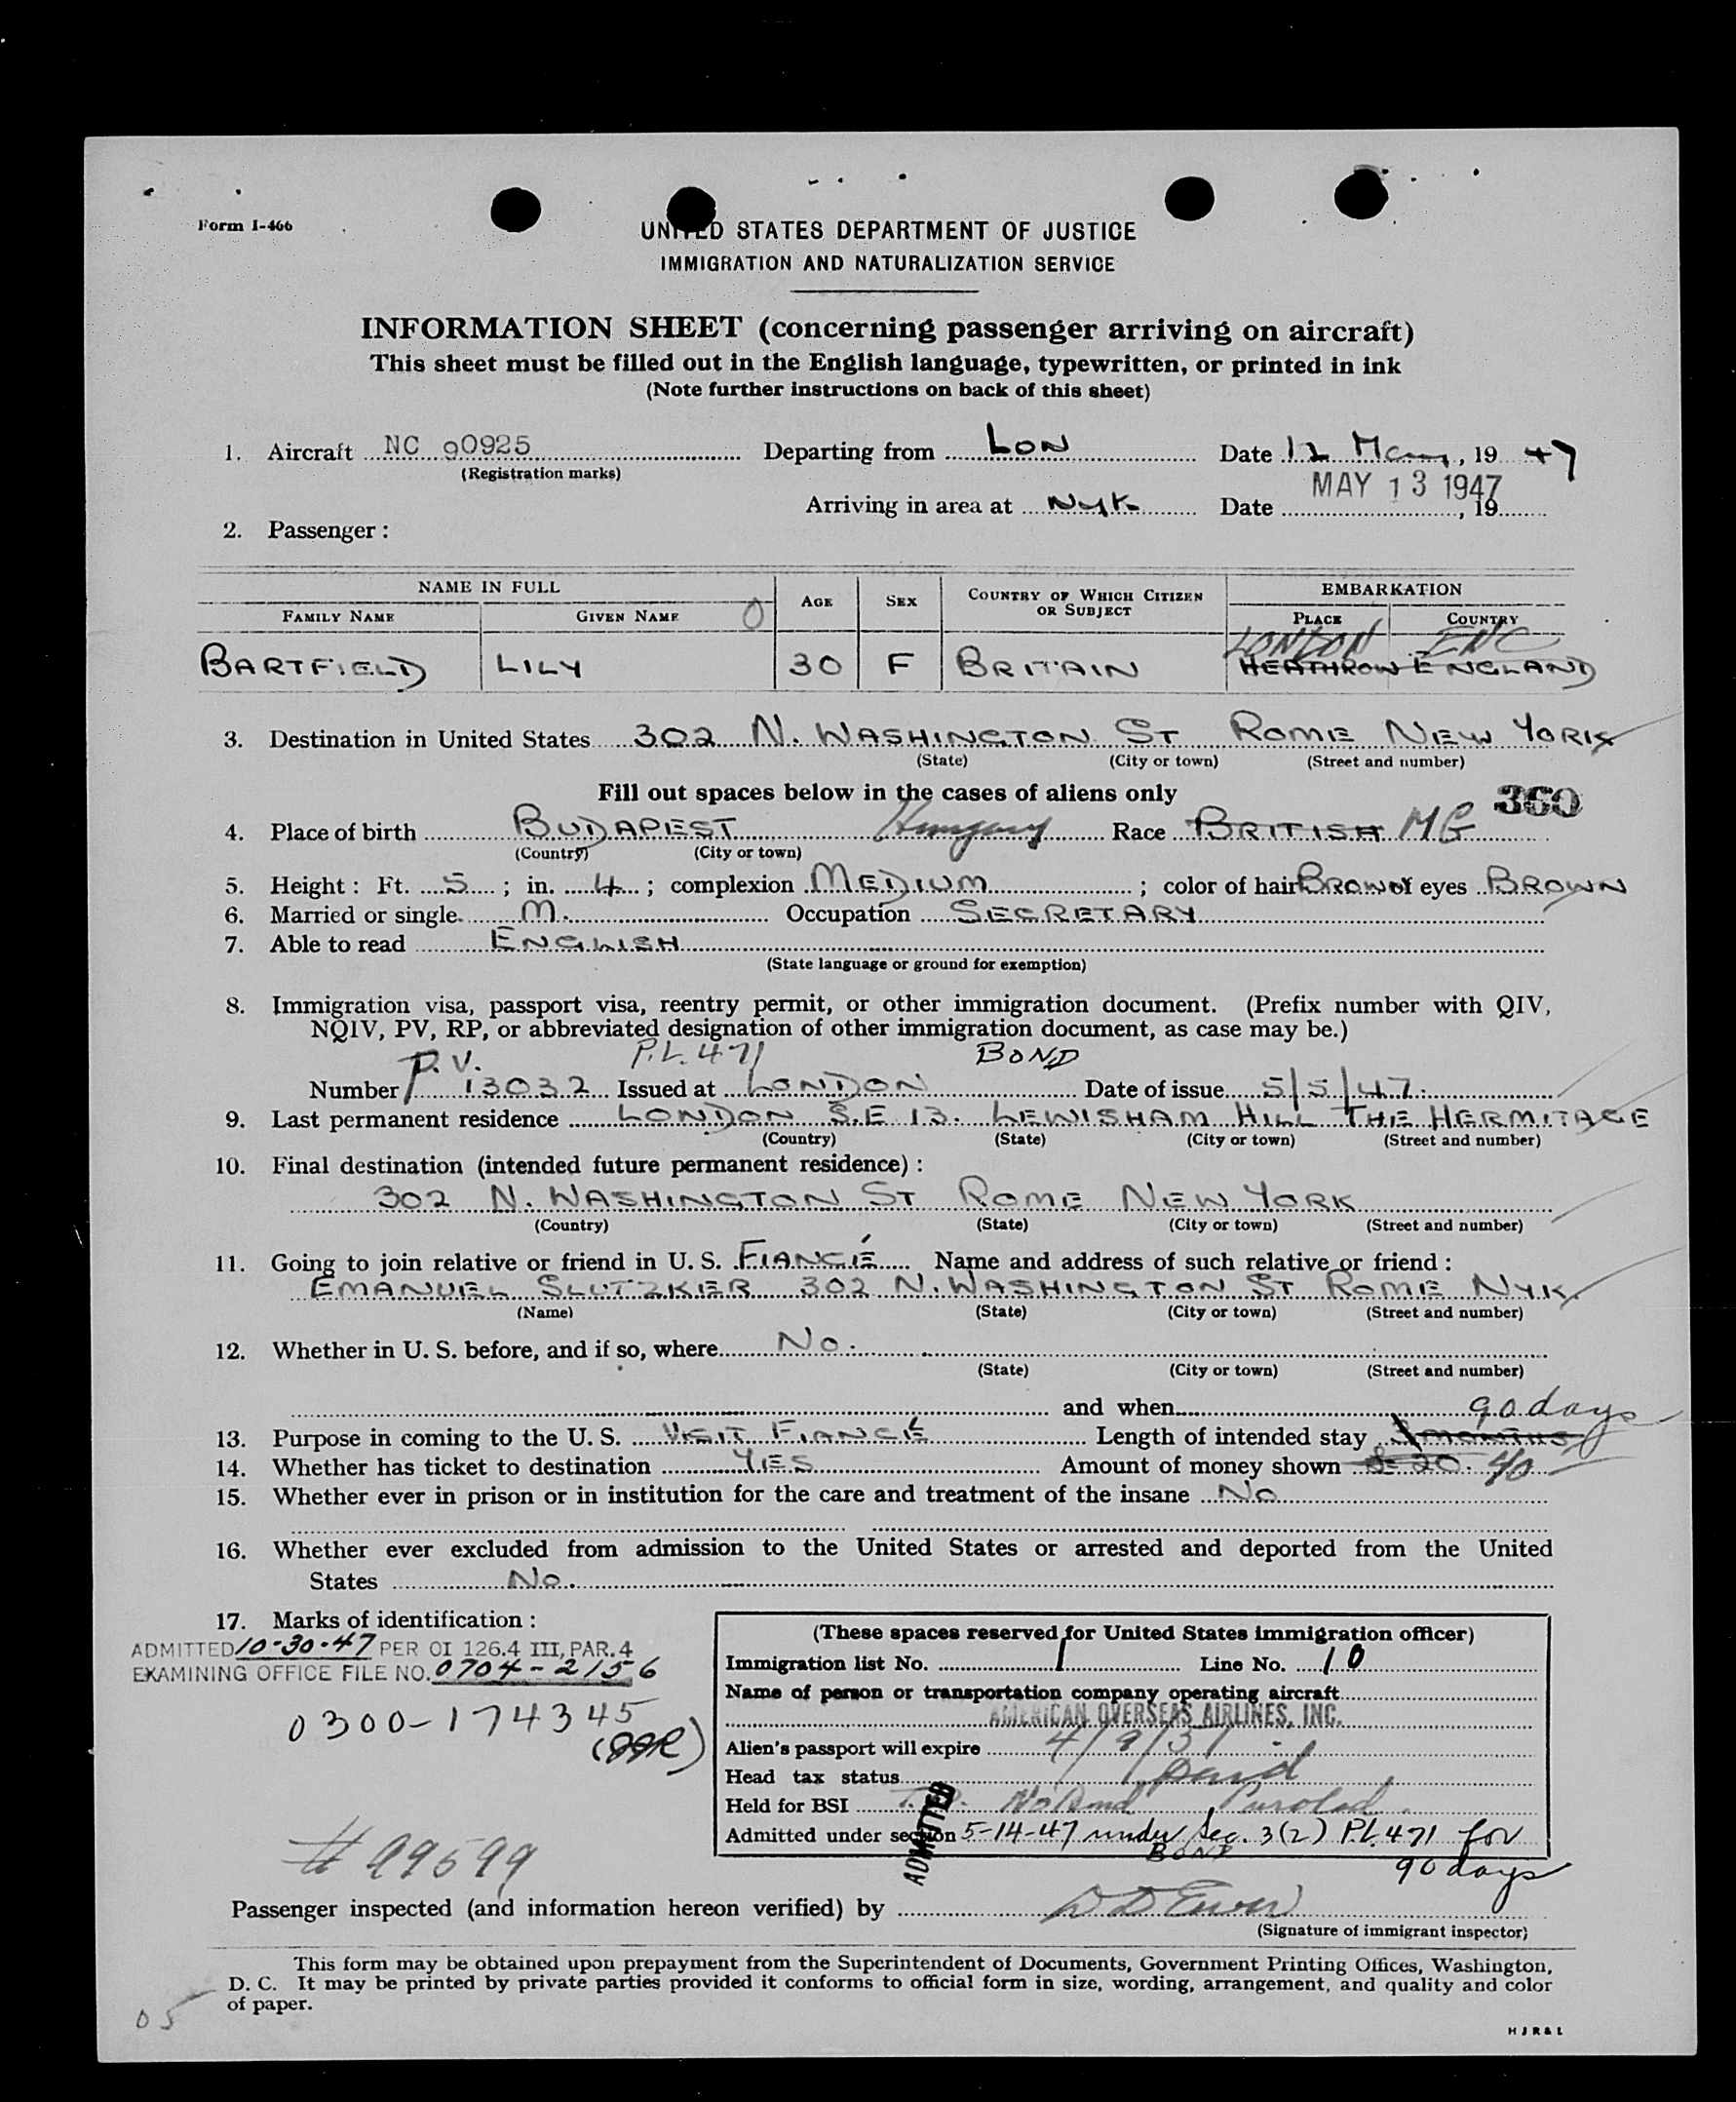 Form I-466
UNITED STATES DEPARTMENT OF JUSTICE
IMMIGRATION AND NATURALIZATION SERVICE
INFORMATION SHEET (concerning passenger arriving on aircraft)
This sheet must be filled out in the English language, typewritten, or printed in ink
(Note further instructions on back of this sheet)
1. Aircraft NC 90925 Departing from LON Date 12 May, 19 47
(Registration marks)
MAY 13 1947
Arriving in area at NYK Date , 19
2. Passenger :
NAME IN FULL AGE SEX COUNTRY OF WHICH CITIZEN OR SUBJECT EMBARKATION
FAMILY NAME GIVEN NAME PLACE COUNTRY
LONDON ENG
BARTFIELD LILY 30 F BRITAIN HEATHROW ENGLAND
3. Destination in United States 302 N. WASHINGTON ST ROME NEW YORK
(State) (City or town) (Street and number)
Fill out spaces below in the cases of aliens only 360
4. Place of birth BUDAPEST Hungary Race BRITISH MG
(Country) (City or town)
5. Height : Ft. 5 ; in. 4 ; complexion MEDIUM ; color of hair BROWN of eyes BROWN
6. Married or single M. Occupation SECRETARY
7. Able to read ENGLISH
(State language or ground for exemption)
8. Immigration visa, passport visa, reentry permit, or other immigration document. (Prefix number with QIV,
NQIV, PV, RP, or abbreviated designation of other immigration document, as case may be.)
P.V. P.L. 471 BOND
Number 13032 Issued at LONDON Date of issue 5/5/47.
9. Last permanent residence LONDON S.E 13. LEWISHAM HILL THE HERMITAGE
(Country) (State) (City or town) (Street and number)
10. Final destination (intended future permanent residence) :
302 N. WASHINGTON ST ROME NEW YORK
(Country) (State) (City or town) (Street and number)
11. Going to join relative or friend in U. S. FIANCIÉ Name and address of such relative or friend :
EMANUEL SLUTZKIER 302 N. WASHINGTON ST ROME NYK
(Name) (State) (City or town) (Street and number)
12. Whether in U. S. before, and if so, where No.
(State) (City or town) (Street and number)
and when 90 days
13. Purpose in coming to the U. S. VISIT FIANCIÉ Length of intended stay 3 MONTHS
14. Whether has ticket to destination YES Amount of money shown $ 20. 40
15. Whether ever in prison or in institution for the care and treatment of the insane No
16. Whether ever excluded from admission to the United States or arrested and deported from the United
States No.
17. Marks of identification :
ADMITTED 10-30-47 PER OI 126.4 III, PAR. 4
EXAMINING OFFICE FILE NO. 0704-2156
0300-174345
# 99599
(These spaces reserved for United States immigration officer)
Immigration list No. 1 Line No. 10
Name of person or transportation company operating aircraft
AMERICAN OVERSEAS AIRLINES, INC.
Alien's passport will expire 4/9/51
Head tax status paid
Held for BSI
Admitted under section 5-14-47 under Sec. 3(2) P.L. 471 for
BOND
90 days
ADMITTED
Passenger inspected (and information hereon verified) by
(Signature of immigrant inspector)
This form may be obtained upon prepayment from the Superintendent of Documents, Government Printing Offices, Washington,
D. C. It may be printed by private parties provided it conforms to official form in size, wording, arrangement, and quality and color
of paper.
05
H J R & L